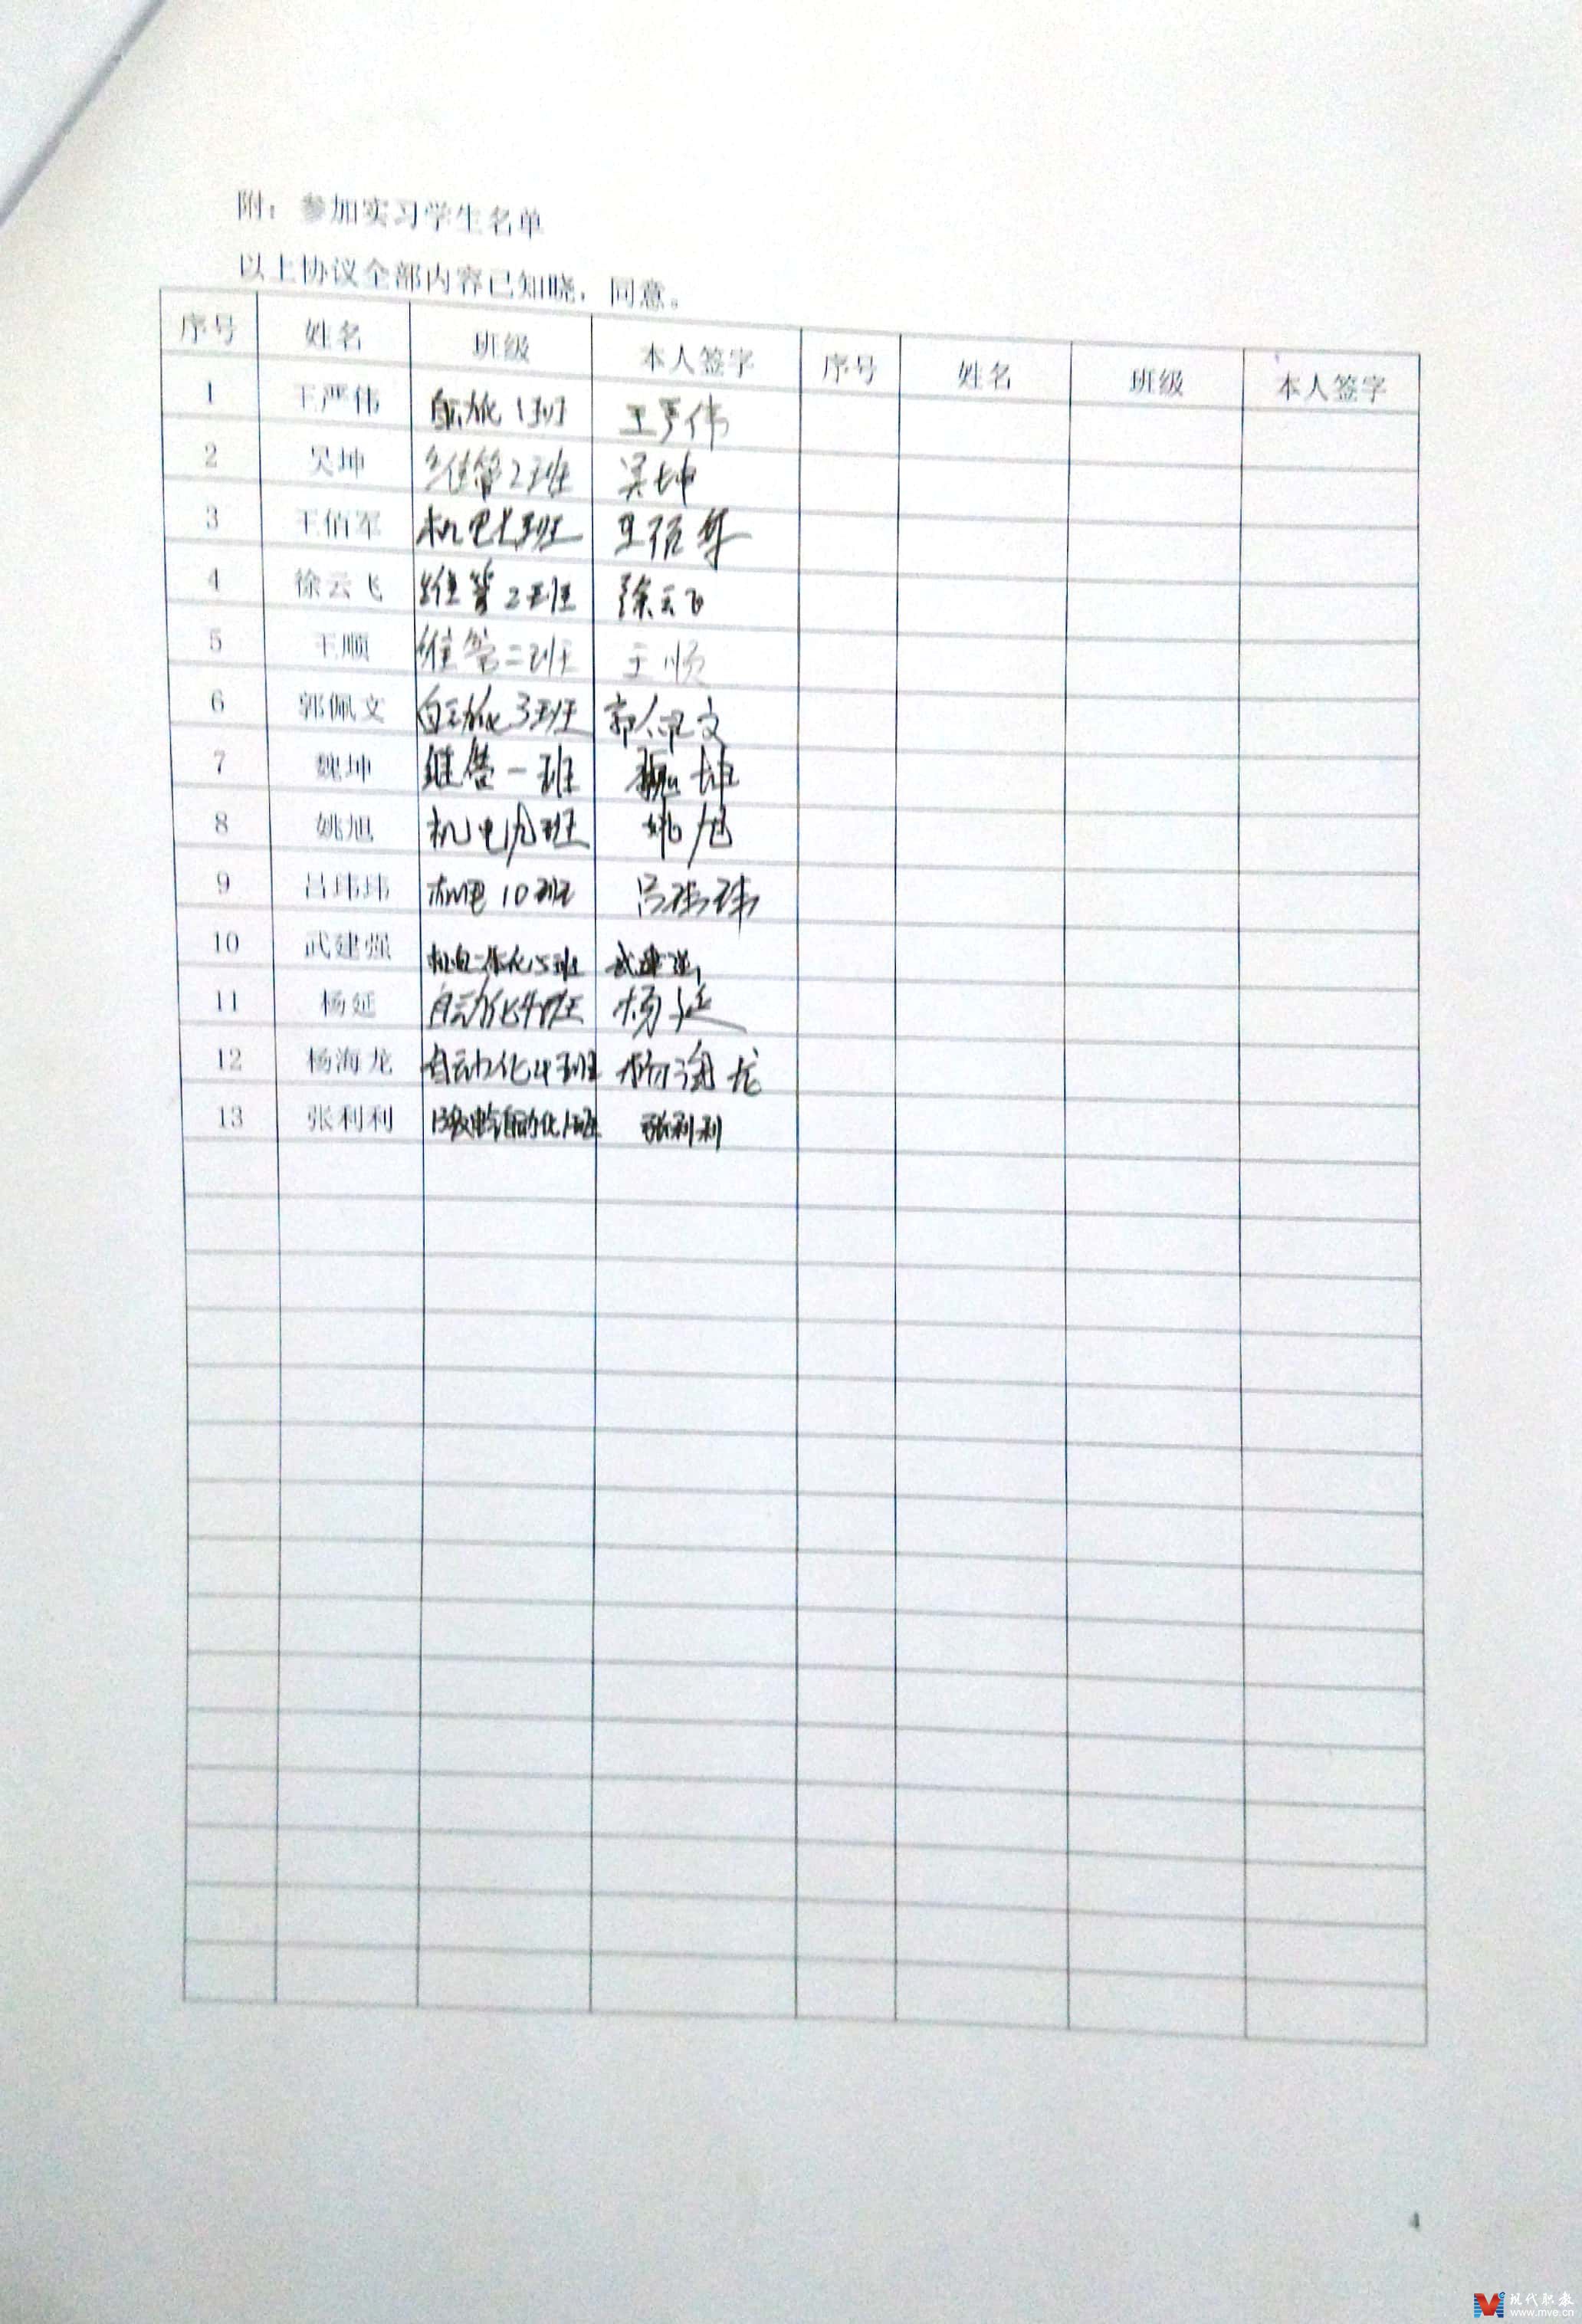 附：参加实习学生名单
以上协议全部内容已知晓，同意。
序号 姓名 班级 本人签字 序号 姓名 班级 本人签字
1 王严伟 自动化1班 王严伟
2 吴坤 维管2班 吴坤
3 王佰军 机电 班 王佰军
4 徐云飞 维管2班 徐云飞
5 王顺 维管二班 王顺
6 郭佩文 自动化3班 郭佩文
7 魏坤 维管一班 魏坤
8 姚旭 机电 班 姚旭
9 吕玮玮 机电10班 吕玮玮
10 武建强 机电一体化15班 武建强
11 杨延 自动化4班 杨延
12 杨海龙 自动化4班 杨海龙
13 张利利 13级电气自动化1班 张利利
4
现代职教
www.mve.cn